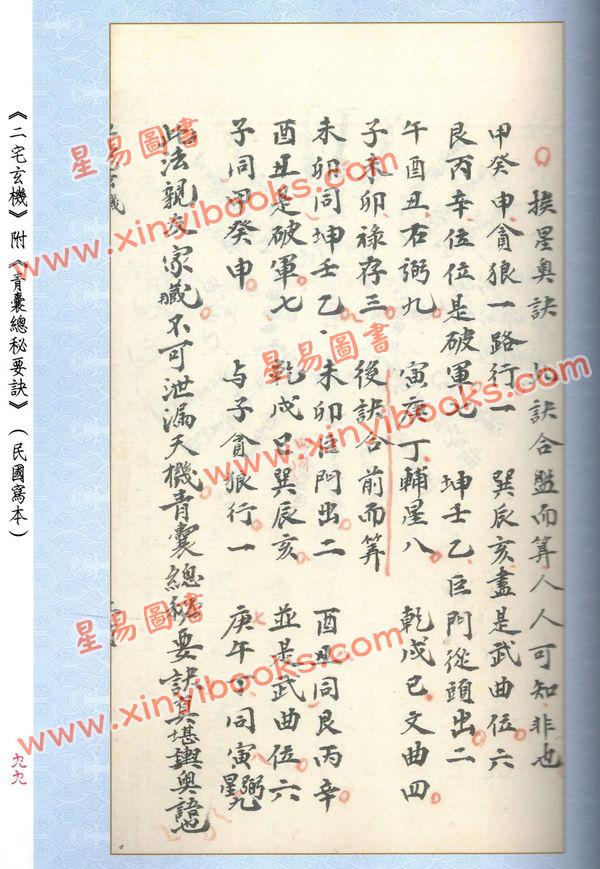 挨星奧訣 訣合盤而算人人可知非也
甲癸申貪狼一路行一 巽辰亥盡是武曲位六
艮丙辛位位是破軍七 坤壬乙巨門從頭出二
午酉丑右弼九 寅庚丁輔星八 乾戌巳文曲四
子未卯祿存三 後訣合前而算
未卯同坤壬乙 未卯位門出二 酉丑同艮丙辛
酉丑是破軍七 乾戌巳巽辰亥 並是武曲位六
子同甲癸申 与子貪狼行一 庚午丁同寅弼星九
此法親友家藏不可泄漏天機青囊總秘要訣真堪輿奧語也
《二宅玄機》附《青囊總秘要訣》（民國寫本）
九九
星易圖書
www.xinyibooks.com
星易圖書
www.xinyibooks.com
星易圖書
www.xinyibooks.com